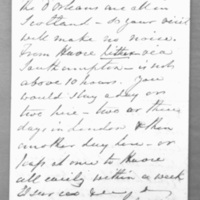 the Orleans are all in
Scotland - So your visit
will make no noise.
From Havre hither via
Southampton - is not
above 10 hours. You
would stay a day or
two here - two or three
days in London & then
another day here - or
back at once to Havre
all easily within a week